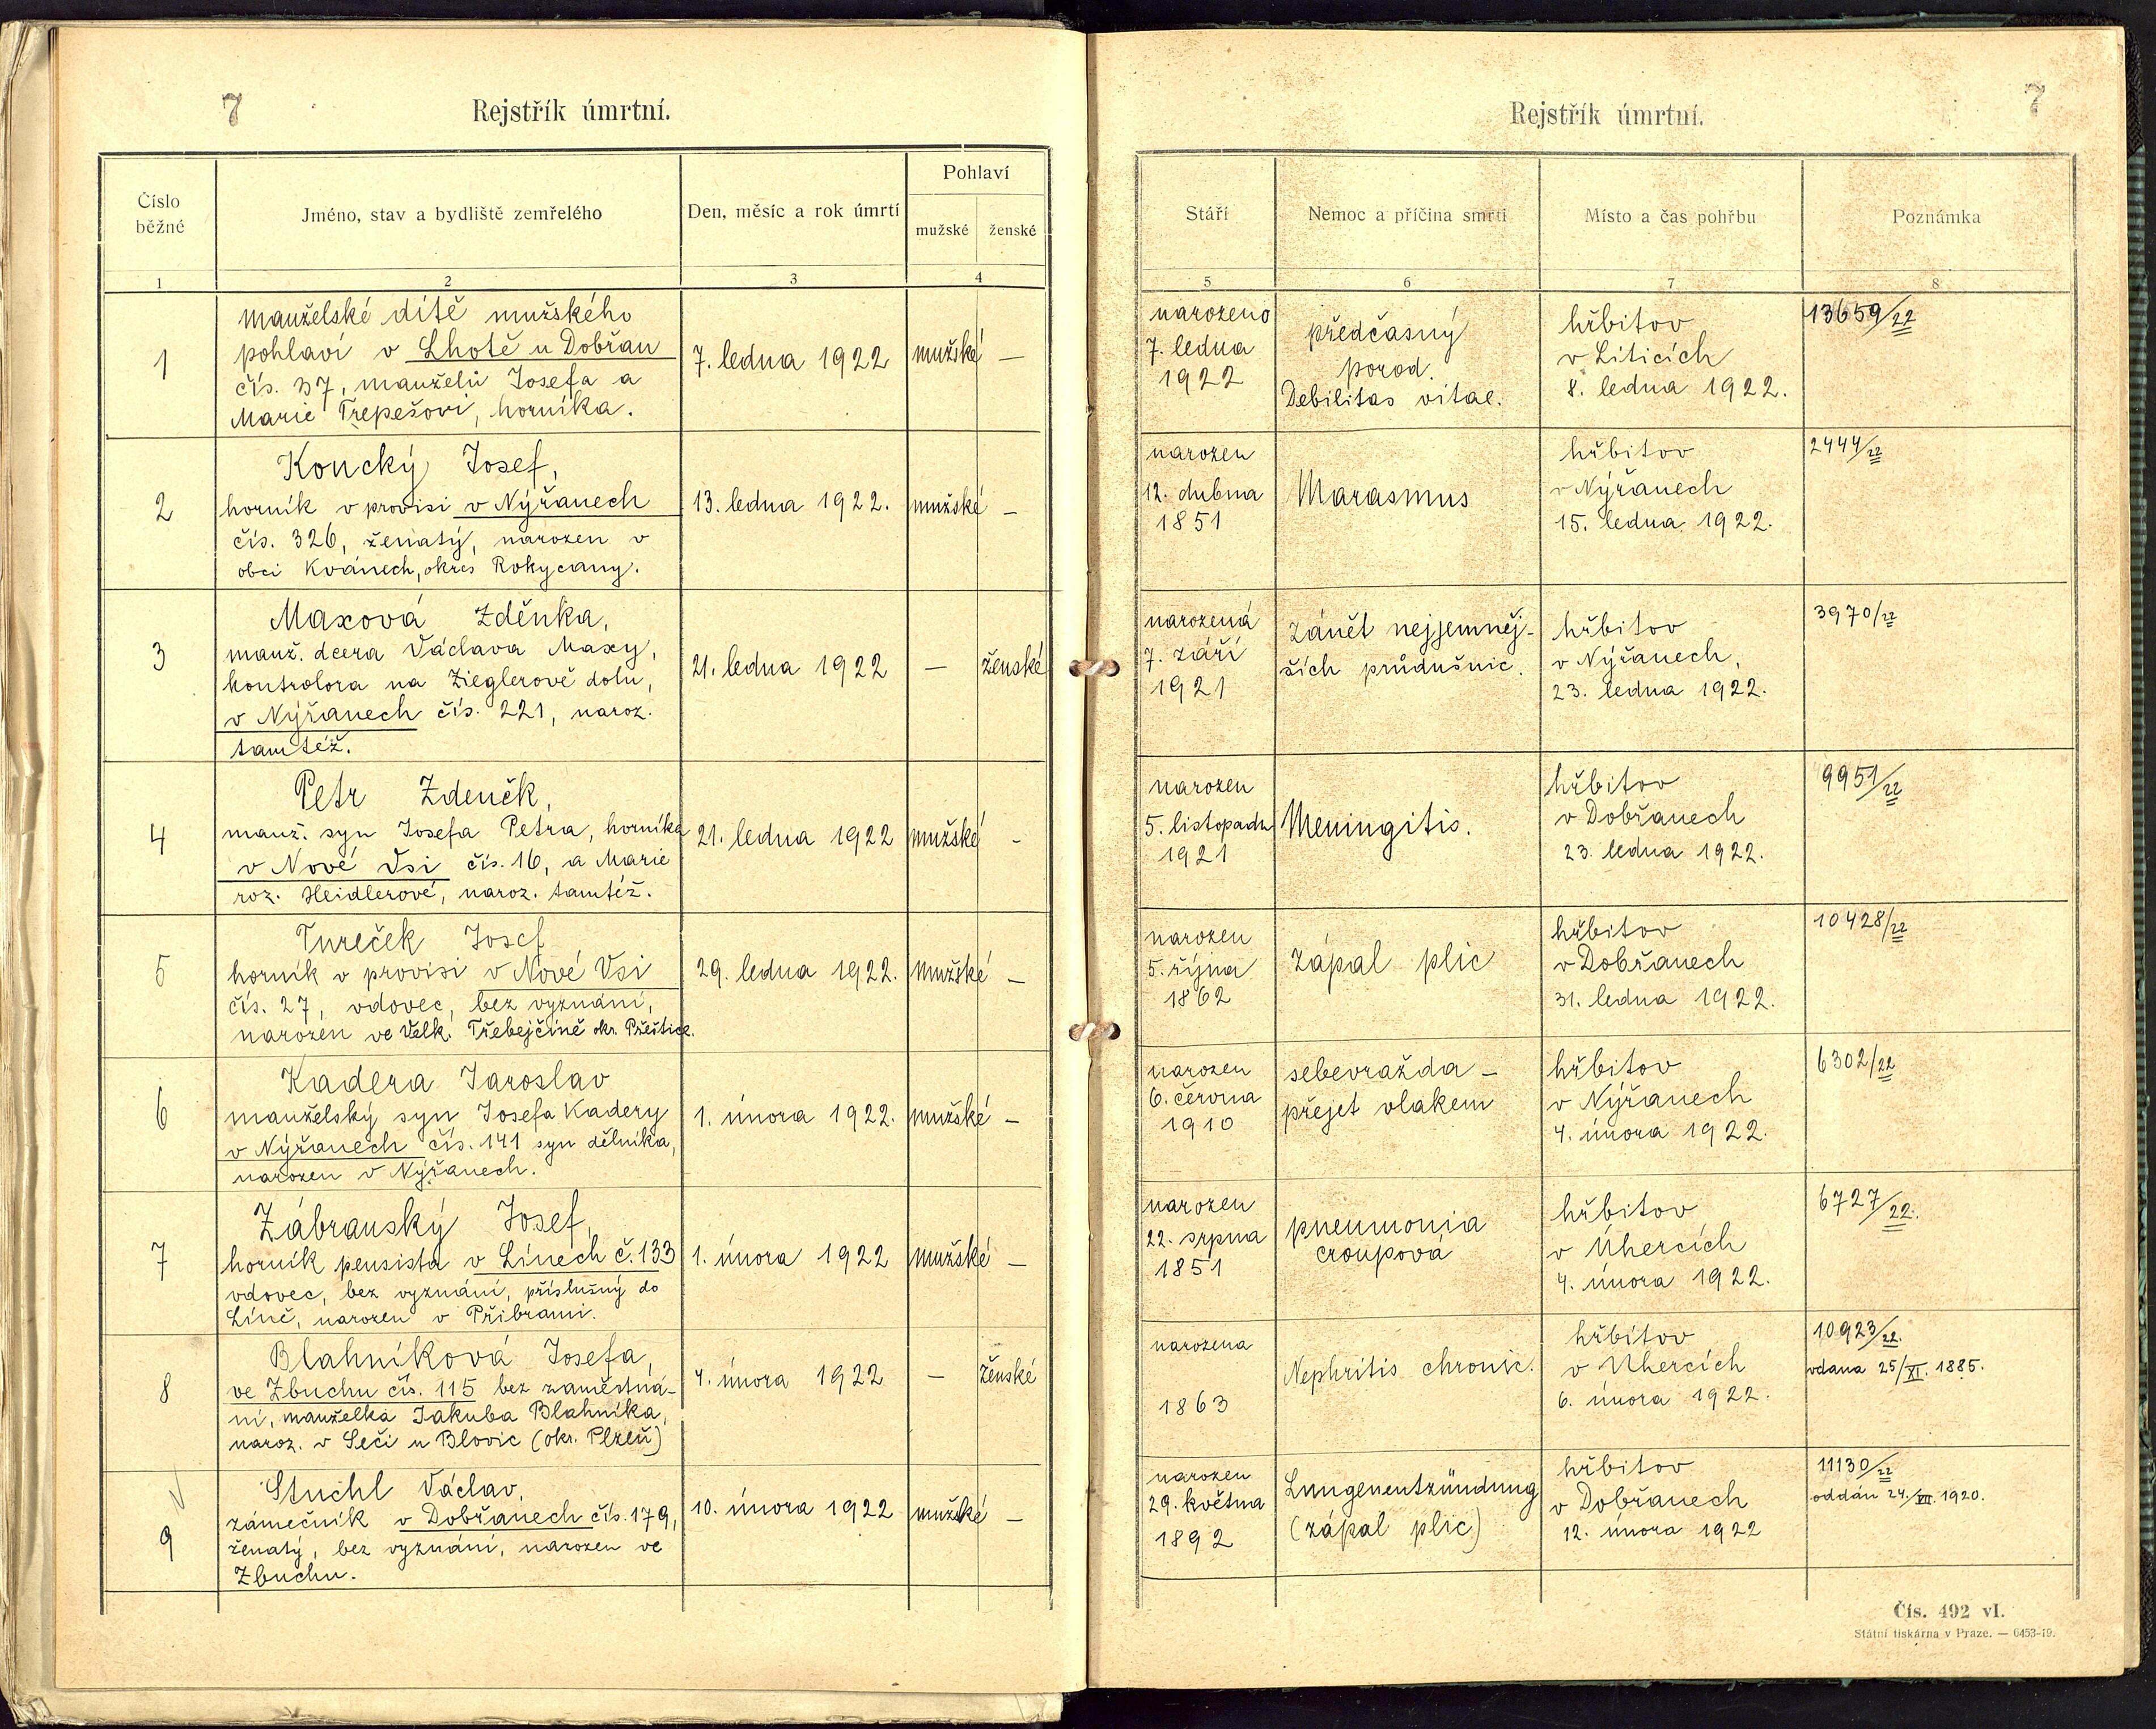 7
Rejstřík úmrtní.
Číslo
běžné
Jméno, stav a bydliště zemřelého
Den, měsíc a rok úmrtí
Pohlaví
mužské
ženské
1
2
3
4
1
manželské dítě mužského
pohlaví v Lhotě u Dobřan
čís. 37, manželů Josefa a
Marie Trepešovi, horníka.
7. ledna 1922
mužské
—
2
Koucký Josef,
horník v provisi v Nýřanech
čís. 326, ženatý, narozen v
obci Kvánech, okres Rokycany.
13. ledna 1922.
mužské
—
3
Maxová Zděnka,
manž. dcera Václava Maxy,
kontrolora na Zieglerově dolu,
v Nýřanech čís. 221, naroz.
tamtéž.
21. ledna 1922
—
ženské
4
Petr Zdeněk,
manž. syn Josefa Petra, horníka
v Nové Vsi čís. 16, a Marie
roz. Heidlerové, naroz. tamtéž.
21. ledna 1922
mužské
-
5
Tureček Josef
horník v provisi v Nové Vsi
čís. 27, vdovec, bez vyznání,
narozen ve Velk. Třebejčině okr. Přeštice.
29. ledna 1922.
mužské
—
6
Kadera Jaroslav
manželský syn Josefa Kadery
v Nýřanech čís. 141 syn dělníka,
narozen v Nýřanech.
1. února 1922.
mužské
—
7
Zábranský Josef,
horník pensista v Línech č. 133
vdovec, bez vyznání, příslušný do
Líně, narozen v Přibrami.
1. února 1922
mužské
—
8
Blahníková Josefa,
ve Zbuchu čís. 115 bez zaměstná-
ní, manželka Jakuba Blahníka,
naroz. v Seči u Blovic (okr. Plzeň)
4. února 1922
—
ženské
9
Stuchl Václav,
zámečník v Dobřanech čís. 179,
ženatý, bez vyznání, narozen ve
Zbuchu.
10. února 1922
mužské
—
Rejstřík úmrtní.
7
Stáří
Nemoc a příčina smrti
Místo a čas pohřbu
Poznámka
5
6
7
8
narozeno
7. ledna
1922
předčasný
porod.
Debilitas vitae.
hřbitov
v Liticích
8. ledna 1922.
13659/22
narozen
12. dubna
1851
Marasmus
hřbitov
v Nýřanech
15. ledna 1922.
2444/22
narozená
7. září
1921
Zánět nejjemněj-
ších průdušnic.
hřbitov
v Nýřanech,
23. ledna 1922.
3970/22
narozen
5. listopadu
1921
Meningitis.
hřbitov
v Dobřanech
23. ledna 1922.
9951/22
narozen
5. října
1862
Zápal plic
hřbitov
v Dobřanech
31. ledna 1922.
10428/22
narozen
6. června
1910
sebevražda —
přejet vlakem
hřbitov
v Nýřanech
4. února 1922.
6302/22
narozen
22. srpna
1851
pneumonia
croupová
hřbitov
v Úhercích
4. února 1922.
6727/22.
narozena
1863
Nephritis chronic.
hřbitov
v Uhercích
6. února 1922.
10923/22.
vdana 25/XI. 1885.
narozen
29. května
1892
Lungenentzündung
(zápal plic)
hřbitov
v Dobřanech
12. února 1922
11130/22
oddán 24./VII. 1920.
Čís. 492 vI.
Státní tiskárna v Praze. — 6453-19.